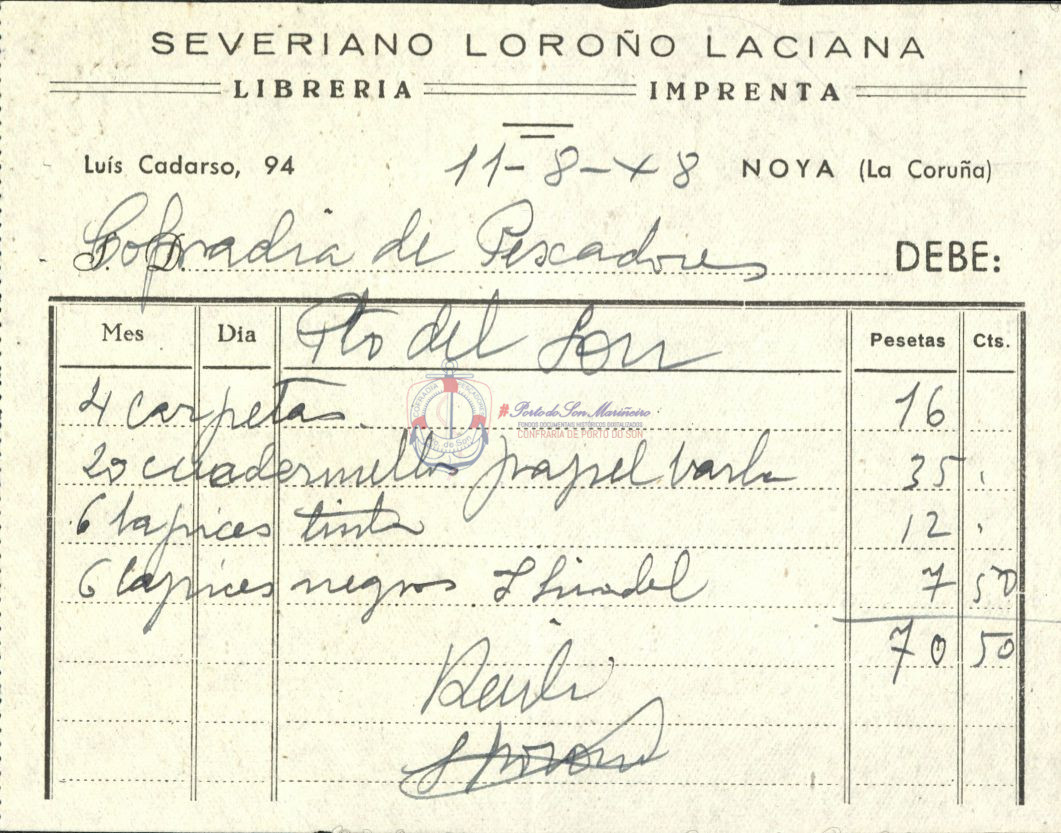 SEVERIANO LOROÑO LACIANA
LIBRERIA IMPRENTA
Luís Cadarso, 94 11-8-48 NOYA (La Coruña)
Cofradia de Pescadores DEBE:
Mes Dia Pto del Son Pesetas Cts.
4 carpetas 16
#PortodoSon Mariñeiro
FONDOS DOCUMENTAIS HISTÓRICOS DIXITALIZADOS
CONFRARÍA DE PORTO DO SON
20 papel barba 35
6 lapices tinta 12
6 lapices negros 7 50
70 50
Recibi